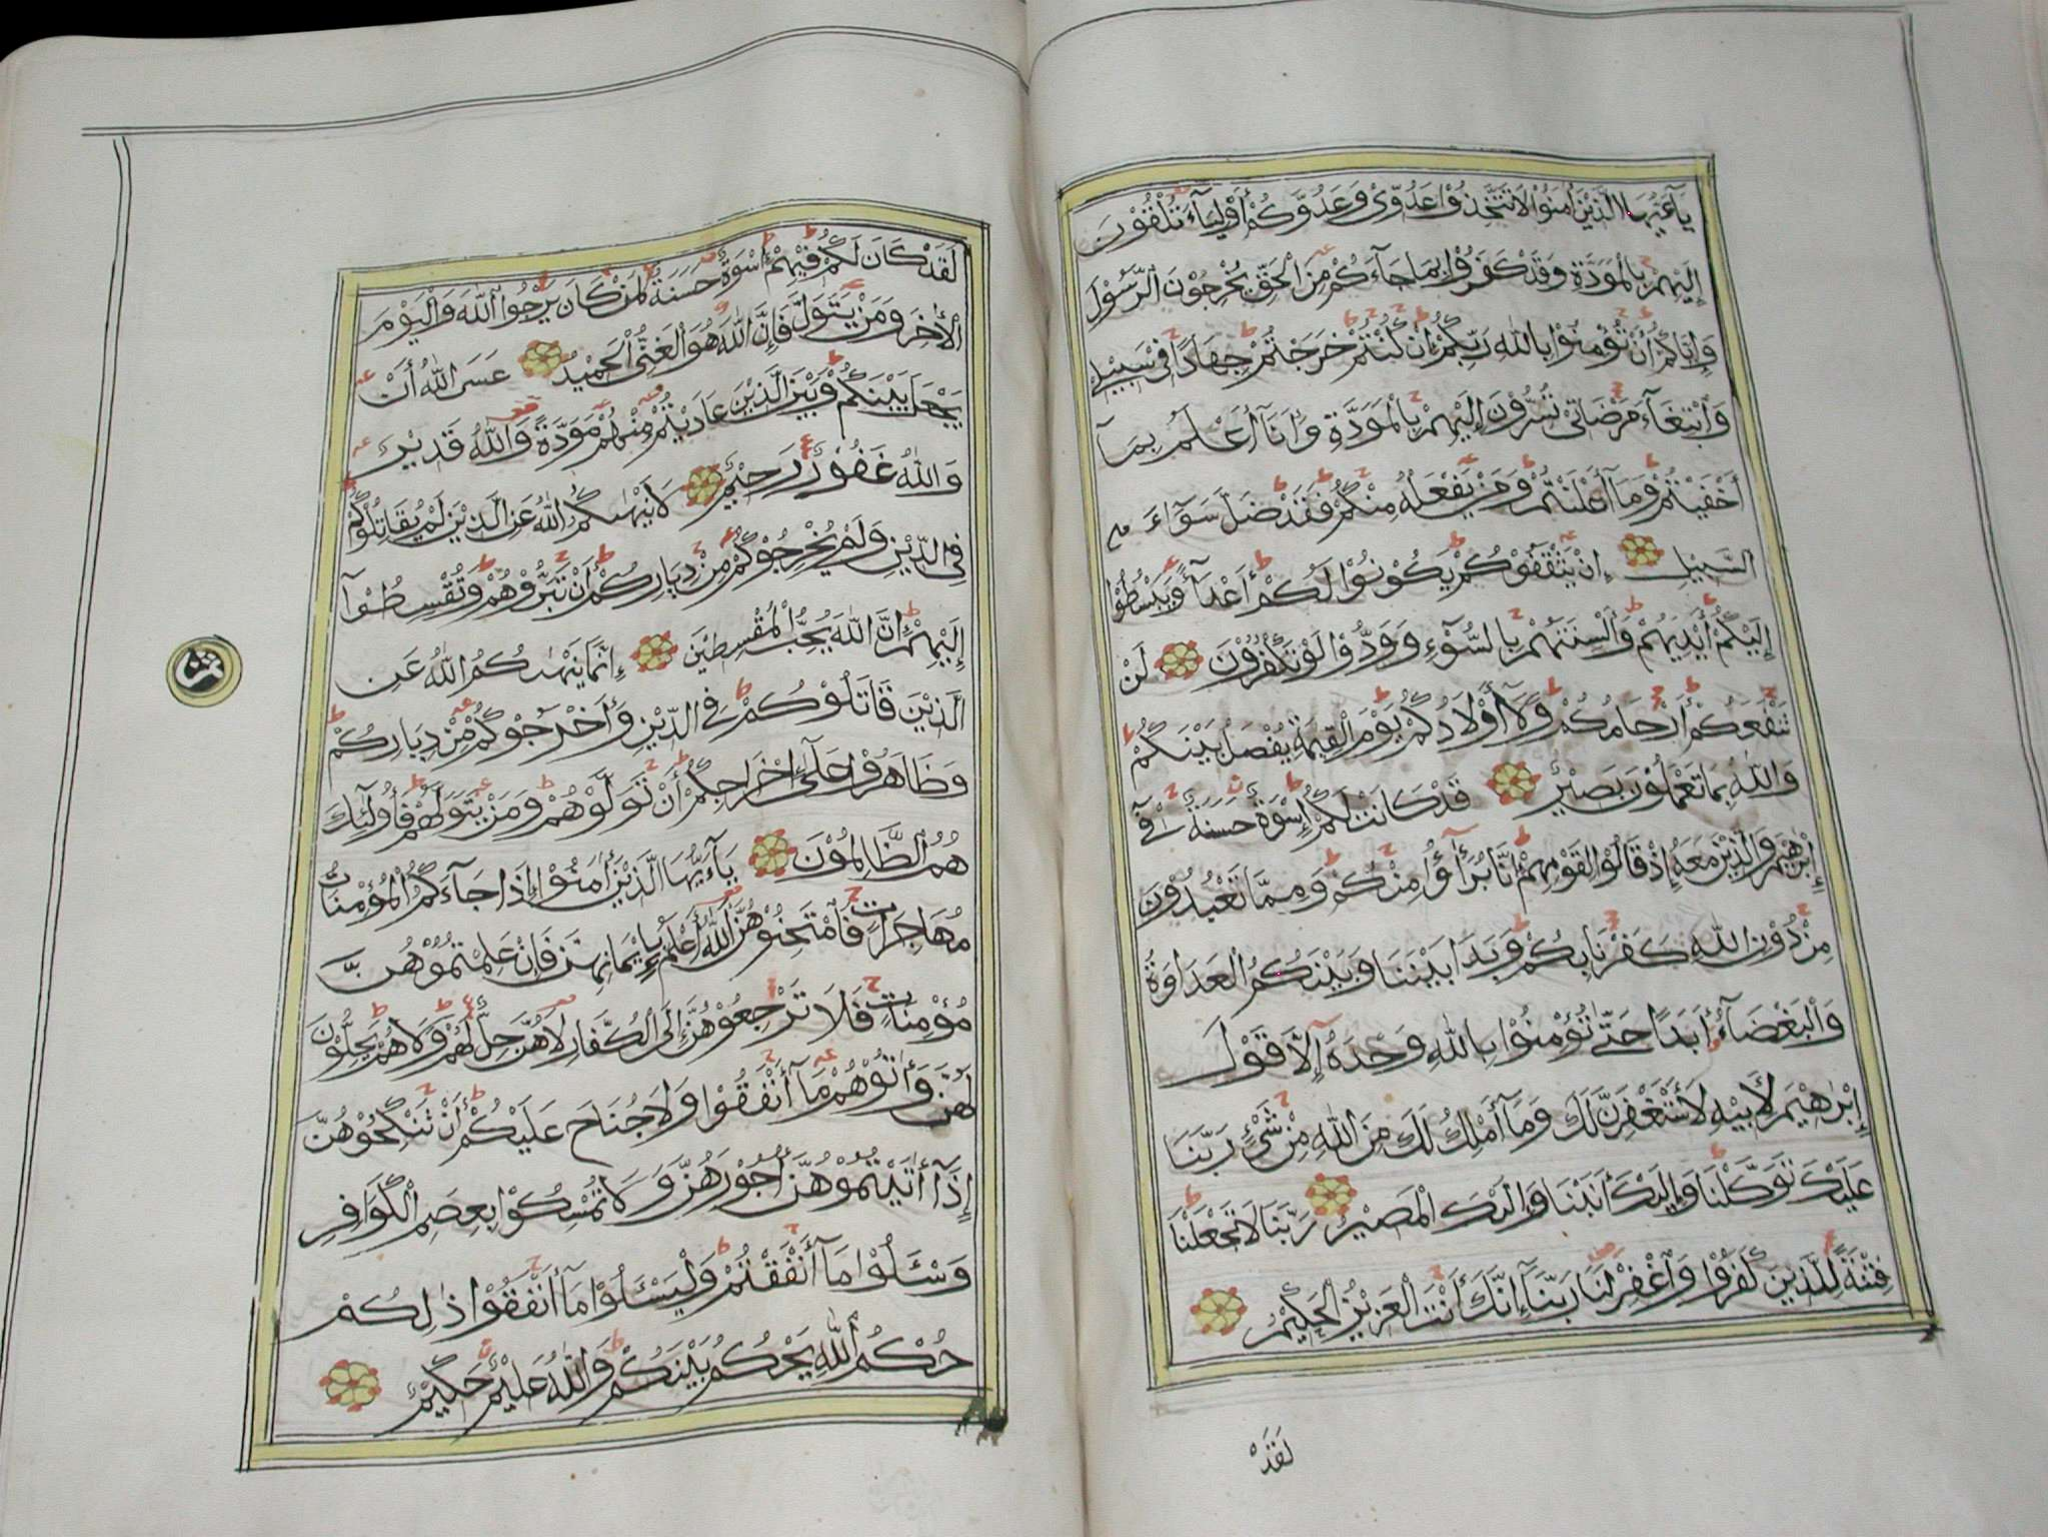 يَآءَيُّهَا الَّذِيْنَ اٰمَنُوْا لَا تَتَّخِذُوْا عَدُوِّىْ وَعَدُوَّكُمْ أَوْلِيَآءَ تُلْقُوْنَ
إِلَيْهِمْ بِالْمَوَدَّةِ وَقَدْ كَفَرُوْا بِمَا جَآءَكُمْ مِنَ الْحَقِّ يُخْرِجُوْنَ الرَّسُوْلَ
وَإِيَّاكُمْ أَنْ تُؤْمِنُوْا بِاللّٰهِ رَبِّكُمْ إِنْ كُنْتُمْ خَرَجْتُمْ جِهَادًا فِيْ سَبِيْلِيْ
وَابْتِغَآءَ مَرْضَاتِىْ تُسِرُّوْنَ إِلَيْهِمْ بِالْمَوَدَّةِ وَأَنَا أَعْلَمُ بِمَآ
أَخْفَيْتُمْ وَمَآ أَعْلَنْتُمْ وَمَنْ يَفْعَلْهُ مِنْكُمْ فَقَدْ ضَلَّ سَوَآءَ
السَّبِيْلِ إِنْ يَثْقَفُوْكُمْ يَكُوْنُوْا لَكُمْ أَعْدَآءً وَيَبْسُطُوْا
إِلَيْكُمْ أَيْدِيَهُمْ وَأَلْسِنَتَهُمْ بِالسُّوْٓءِ وَوَدُّوْا لَوْ تَكْفُرُوْنَ لَنْ
تَنْفَعَكُمْ أَرْحَامُكُمْ وَلَآ أَوْلَادُكُمْ يَوْمَ الْقِيٰمَةِ يُفْصَلُ بَيْنَكُمْ
وَاللّٰهُ بِمَا تَعْمَلُوْنَ بَصِيْرٌ قَدْ كَانَتْ لَكُمْ إِسْوَةٌ حَسَنَةٌ فِيْٓ
إِبْرٰهِيْمَ وَالَّذِيْنَ مَعَهُ إِذْ قَالُوْا لِقَوْمِهِمْ إِنَّا بُرَآءٰؤُا مِنْكُمْ وَمِمَّا تَعْبُدُوْنَ
مِنْ دُوْنِ اللّٰهِ كَفَرْنَا بِكُمْ وَبَدَا بَيْنَنَا وَبَيْنَكُمُ الْعَدَاوَةُ
وَالْبَغْضَآءُ أَبَدًا حَتّٰى تُؤْمِنُوْا بِاللّٰهِ وَحْدَهُ إِلَّا قَوْلَ
إِبْرٰهِيْمَ لِأَبِيْهِ لَأَسْتَغْفِرَنَّ لَكَ وَمَآ أَمْلِكُ لَكَ مِنَ اللّٰهِ مِنْ شَيْءٍ رَبَّنَا
عَلَيْكَ تَوَكَّلْنَا وَإِلَيْكَ أَنَبْنَا وَإِلَيْكَ الْمَصِيْرُ رَبَّنَا لَا تَجْعَلْنَا
فِتْنَةً لِلَّذِيْنَ كَفَرُوْا وَاغْفِرْ لَنَا رَبَّنَآ إِنَّكَ أَنْتَ الْعَزِيْزُ الْحَكِيْمُ
لَقَدْ
لَقَدْ كَانَ لَكُمْ فِيْهِمْ إِسْوَةٌ حَسَنَةٌ لِمَنْ كَانَ يَرْجُوا اللّٰهَ وَالْيَوْمَ
الْأٰخِرَ وَمَنْ يَتَوَلَّ فَإِنَّ اللّٰهَ هُوَ الْغَنِىُّ الْحَمِيْدُ عَسَى اللّٰهُ أَنْ
يَجْعَلَ بَيْنَكُمْ وَبَيْنَ الَّذِيْنَ عَادَيْتُمْ مِنْهُمْ مَوَدَّةً وَاللّٰهُ قَدِيْرٌ
وَاللّٰهُ غَفُوْرٌ رَحِيْمٌ لَا يَنْهٰىكُمُ اللّٰهُ عَنِ الَّذِيْنَ لَمْ يُقَاتِلُوْكُمْ
فِى الدِّيْنِ وَلَمْ يُخْرِجُوْكُمْ مِنْ دِيَارِكُمْ أَنْ تَبَرُّوْهُمْ وَتُقْسِطُوْآ
إِلَيْهِمْ إِنَّ اللّٰهَ يُحِبُّ الْمُقْسِطِيْنَ إِنَّمَا يَنْهٰىكُمُ اللّٰهُ عَنِ
الَّذِيْنَ قَاتَلُوْكُمْ فِي الدِّيْنِ وَأَخْرَجُوْكُمْ مِنْ دِيَارِكُمْ
وَظَاهَرُوْا عَلٰٓى إِخْرَاجِكُمْ أَنْ تَوَلَّوْهُمْ وَمَنْ يَتَوَلَّهُمْ فَأُولٰٓئِكَ
هُمُ الظَّالِمُوْنَ يَآءَيُّهَا الَّذِيْنَ أٰمَنُوْا إِذَا جَآءَكُمُ الْمُؤْمِنَاتُ
مُهَاجِرَاتٍ فَامْتَحِنُوْهُنَّ اَللّٰهُ أَعْلَمُ بِإِيْمَانِهِنَّ فَإِنْ عَلِمْتُمُوْهُنَّ
مُؤْمِنَاتٍ فَلَا تَرْجِعُوْهُنَّ إِلَى الْكُفَّارِ لَا هُنَّ حِلٌّ لَهُمْ وَلَا هُمْ يَحِلُّوْنَ
لَهُنَّ وَأٰتُوْهُمْ مَآ أَنْفَقُوْا وَلَا جُنَاحَ عَلَيْكُمْ أَنْ تَنْكِحُوْهُنَّ
إِذَآ أٰتَيْتُمُوْهُنَّ أُجُوْرَهُنَّ وَلَا تُمْسِكُوْا بِعِصَمِ الْكَوَافِرِ
وَسْـَٔلُوْا مَآ أَنْفَقْتُمْ وَلْيَسْـَٔلُوْا مَآ أَنْفَقُوْا ذٰلِكُمْ
حُكْمُ اللّٰهِ يَحْكُمُ بَيْنَكُمْ وَاللّٰهُ عَلِيْمٌ حَكِيْمٌ